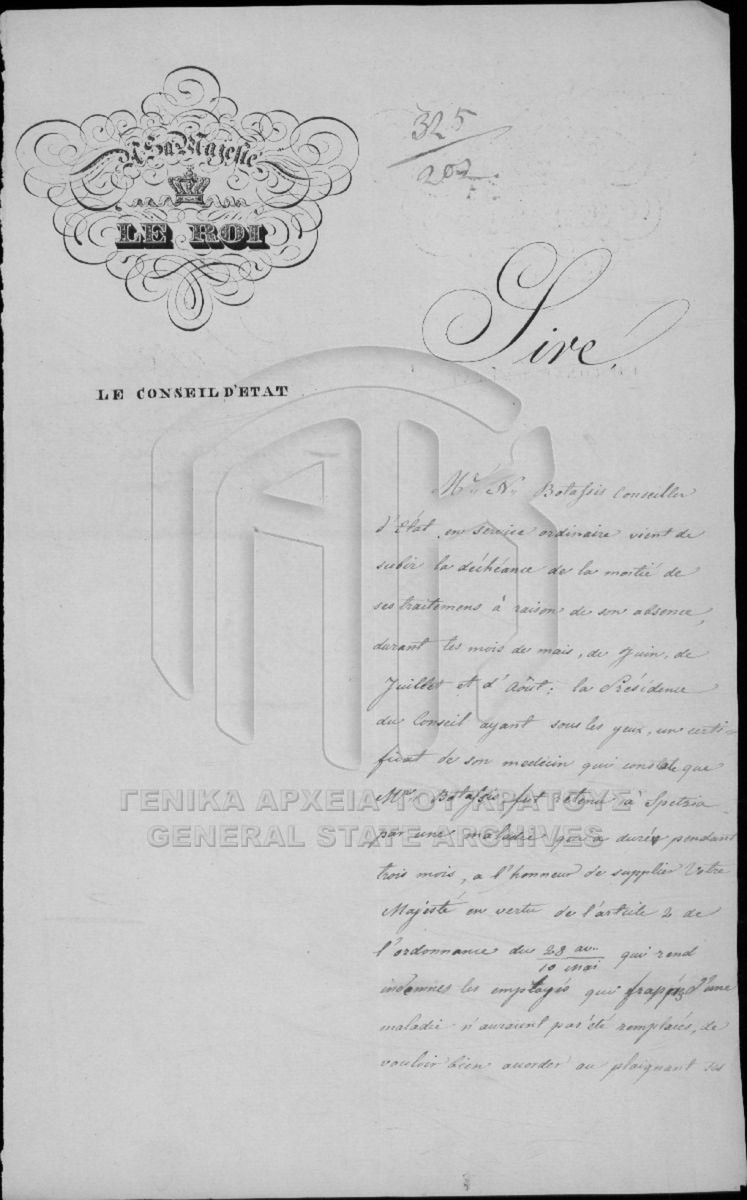 A Sa Majesté
LE ROI
325
202
Sire,
LE CONSEIL D'ETAT
Mr. N. Botassis Conseiller
d'Etat, en service ordinaire vient de
subir la déchéance de la moitié de
ses traitemens à raison de son absence,
durant les mois de mais, de Juin, de
Juillet et d'Août; la Présidence
du Conseil ayant sous les yeux, un certi-
ficat de son medecin qui constate que
Mr. Botassis fut retenu à Spetzia
par une maladie qui a durée pendant
trois mois, a l'honneur de supplier Votre
Majesté en vertu de l'article 2 de
l'ordonnance du 28 av. / 10 Mai qui rend
indemnes les employés qui frappés d'une
maladie n'auraient pas été remplacés, de
vouloir bien accorder au plaignant ses
ΓΕΝΙΚΑ ΑΡΧΕΙΑ ΤΟΥ ΚΡΑΤΟΥΣ
GENERAL STATE ARCHIVES